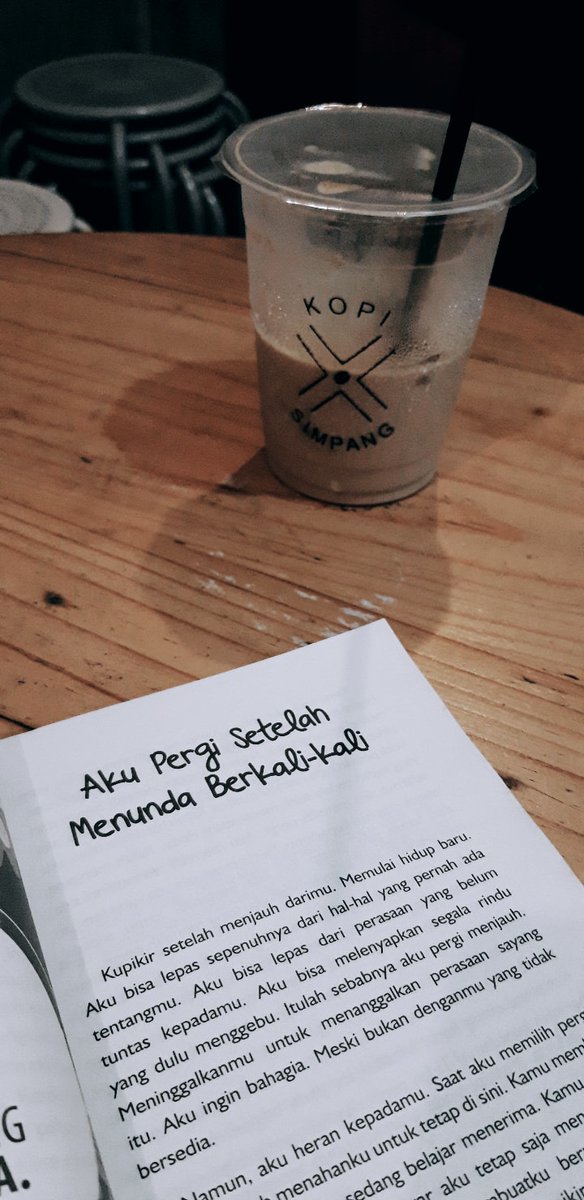 KOPI
SIMPANG
Aku Pergi Setelah
Menunda Berkali-kali
Kupikir setelah menjauh darimu. Memulai hidup baru.
Aku bisa lepas sepenuhnya dari hal-hal yang pernah ada
tentangmu. Aku bisa lepas dari perasaan yang belum
tuntas kepadamu. Aku bisa melenyapkan segala rindu
yang dulu menggebu. Itulah sebabnya aku pergi menjauh.
Meninggalkanmu untuk menanggalkan perasaan sayang
itu. Aku ingin bahagia. Meski bukan denganmu yang tidak
bersedia.
Namun, aku heran kepadamu. Saat aku memilih
menahanku untuk tetap di sini. Kamu
sedang belajar menerima. Kamu
aku tetap saja
G
A.